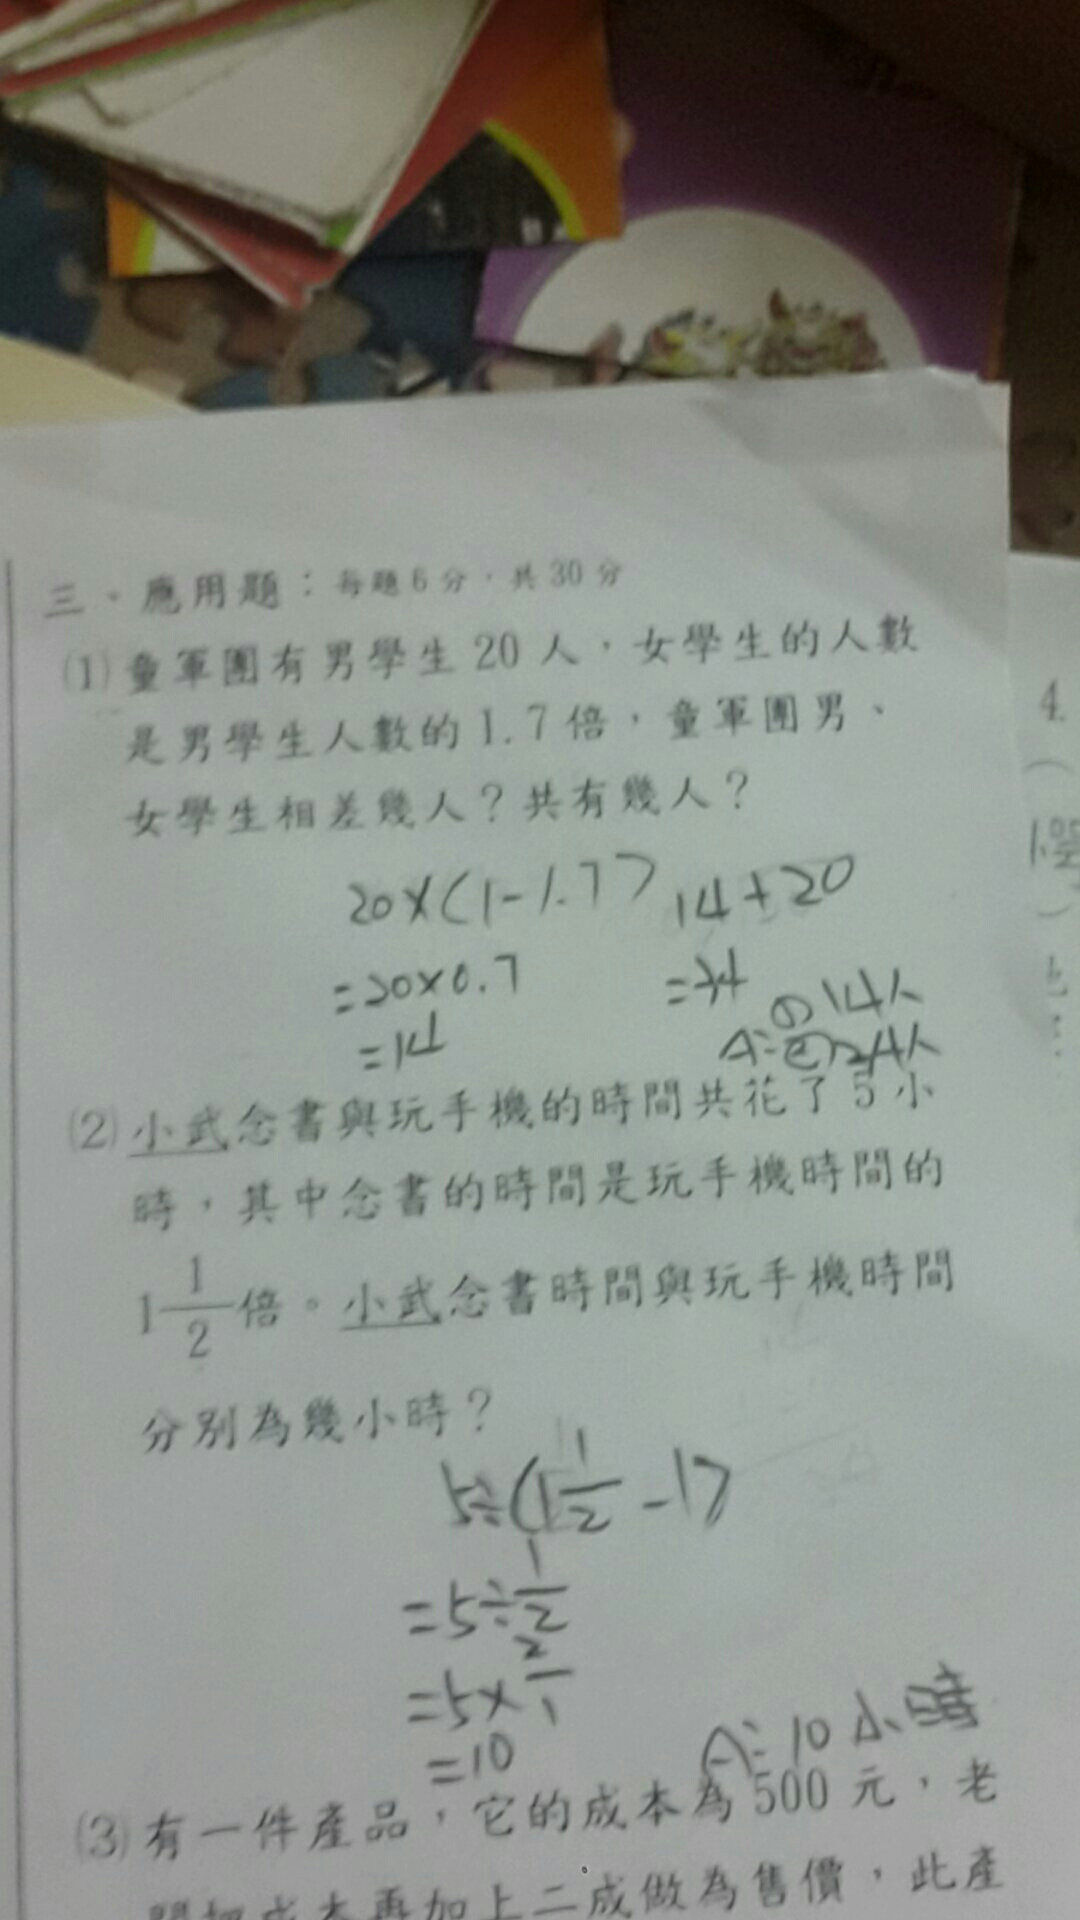 三、應用題：每題6分，共30分
(1) 童軍團有男學生20人，女學生的人數
是男學生人數的1.7倍，童軍團男、
女學生相差幾人？共有幾人？
20×(1-1.7)
=20×0.7
=14
14+20
=34
① 14人
A:② 34人
(2) 小武念書與玩手機的時間共花了5小
時，其中念書的時間是玩手機時間的
1 1/2 倍。小武念書時間與玩手機時間
分別為幾小時？
=5÷1/2
=5×2/1
=10
A:10小時
(3) 有一件產品，它的成本為500元，老
闆把成本再加上二成做為售價，此產
4.